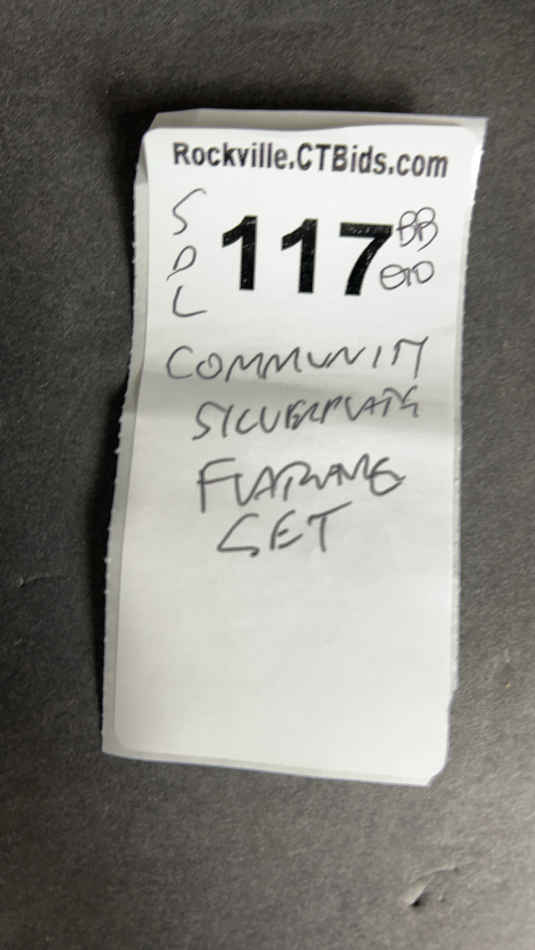 Rockville.CTBids.com
SDL
117
BB
COMMUNITY
SILVERPLATE
FLATWARE
SET